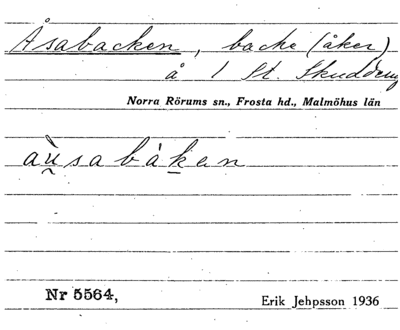 Åsabacken, backe (åker)
å 1 St. Skuddeny
Norra Rörums sn., Frosta hd., Malmöhus län
aùsabàkan
Nr 5564,
Erik Jehpsson 1936